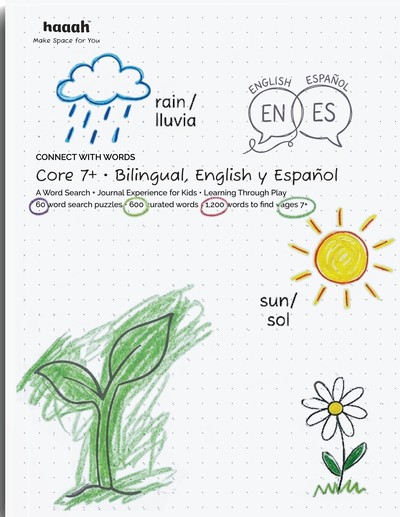 haaah™
Make Space for You
rain /
lluvia
ENGLISH
ESPAÑOL
EN
ES
CONNECT WITH WORDS
Core 7+ • Bilingual, English y Español
A Word Search • Journal Experience for Kids • Learning Through Play
60 word search puzzles • 600 curated words • 1,200 words to find • ages 7+
sun/
sol